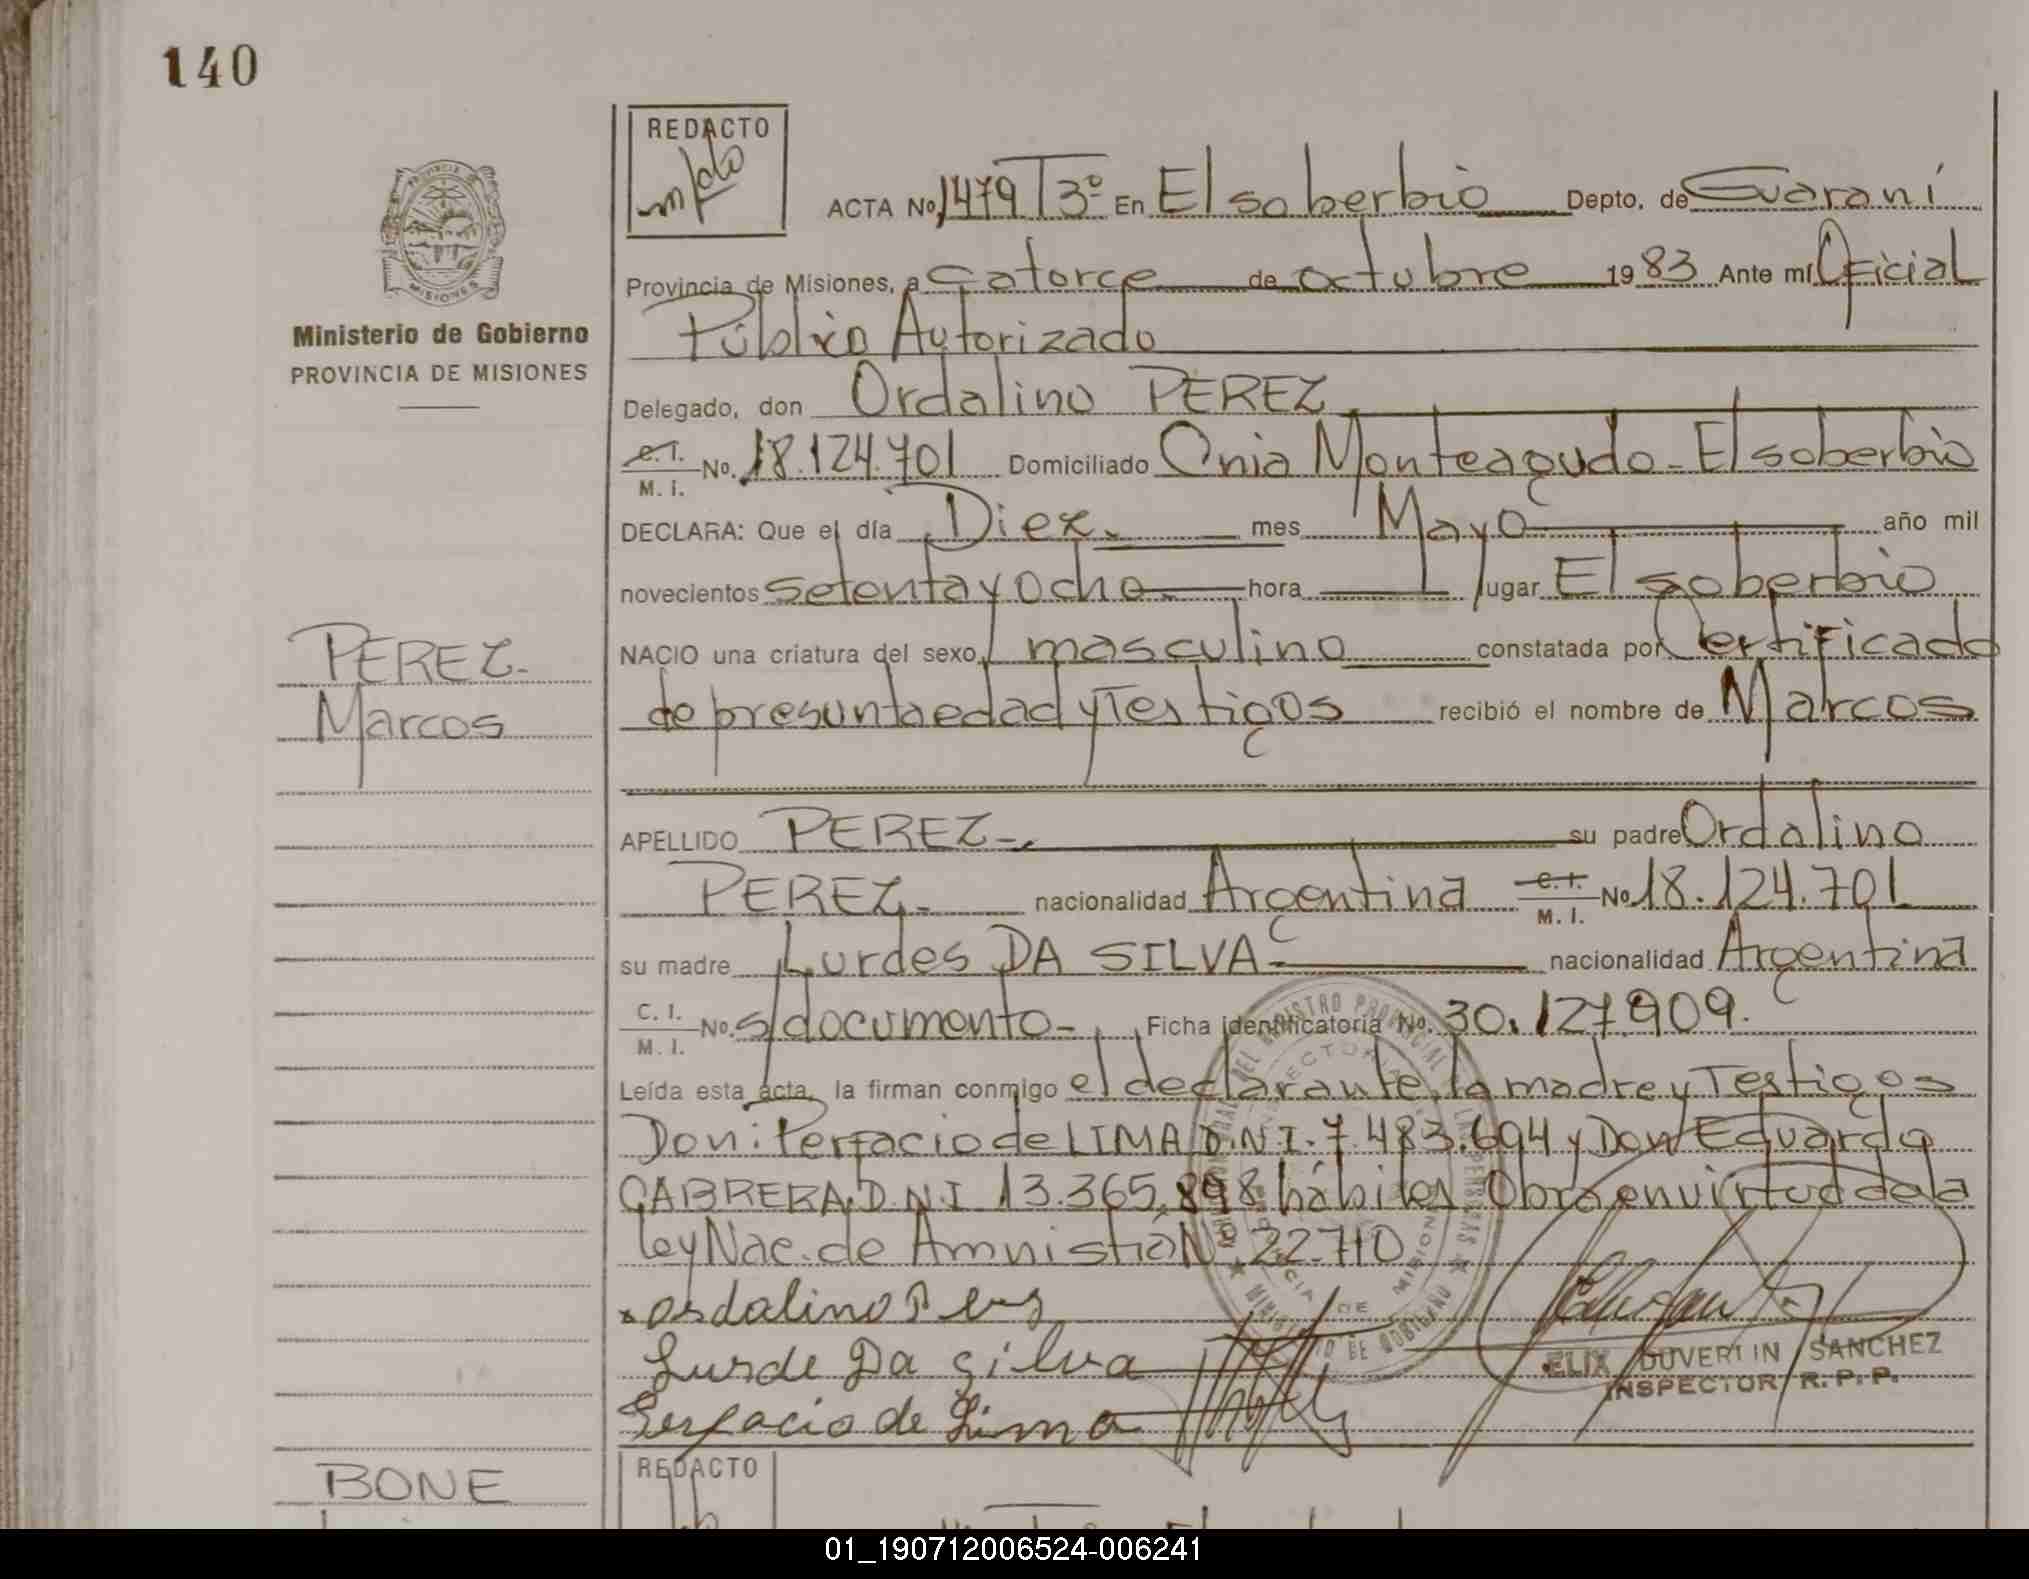 140
REDACTO
ACTA No. 1479 T3º En El soberbio Depto. de Guaraní
Provincia de Misiones, a catorce de octubre 1983 Ante mí Oficial
Público Autorizado
Ministerio de Gobierno
PROVINCIA DE MISIONES
Delegado, don Ordalino PEREZ
C. I. M. I. No. 18.124.701 Domiciliado Cnia Monteagudo - El soberbio
DECLARA: Que el día Diez mes Mayo año mil
novecientos setenta y ocho hora lugar El soberbio
NACIO una criatura del sexo masculino constatada por Certificado
PEREZ-
de presunta edad y Testigos recibió el nombre de Marcos
Marcos
APELLIDO PEREZ- su padre Ordalino
PEREZ- nacionalidad Argentina C. I. M. I. No 18.124.701
su madre Lurdes DA SILVA- nacionalidad Argentina
C. I. M. I. No. s/documento- Ficha identificatoria No. 30.127.909.
Leída esta acta, la firman conmigo el declarante, la madre y Testigos
Don: Perfacio de LIMA D.N.I. 7.483.694 y Don Eduardo
CABRERA D.N.I 13.365.898 hábiles Obra en virtud de la
ley Nac. de Amnistía Nº 22.710
ordalino Perez
Lurde Da Silva
Perfacio de Lima
ELIX DUVERTIN SANCHEZ
INSPECTOR R. P. P.
BONE
REDACTO
01_190712006524-006241